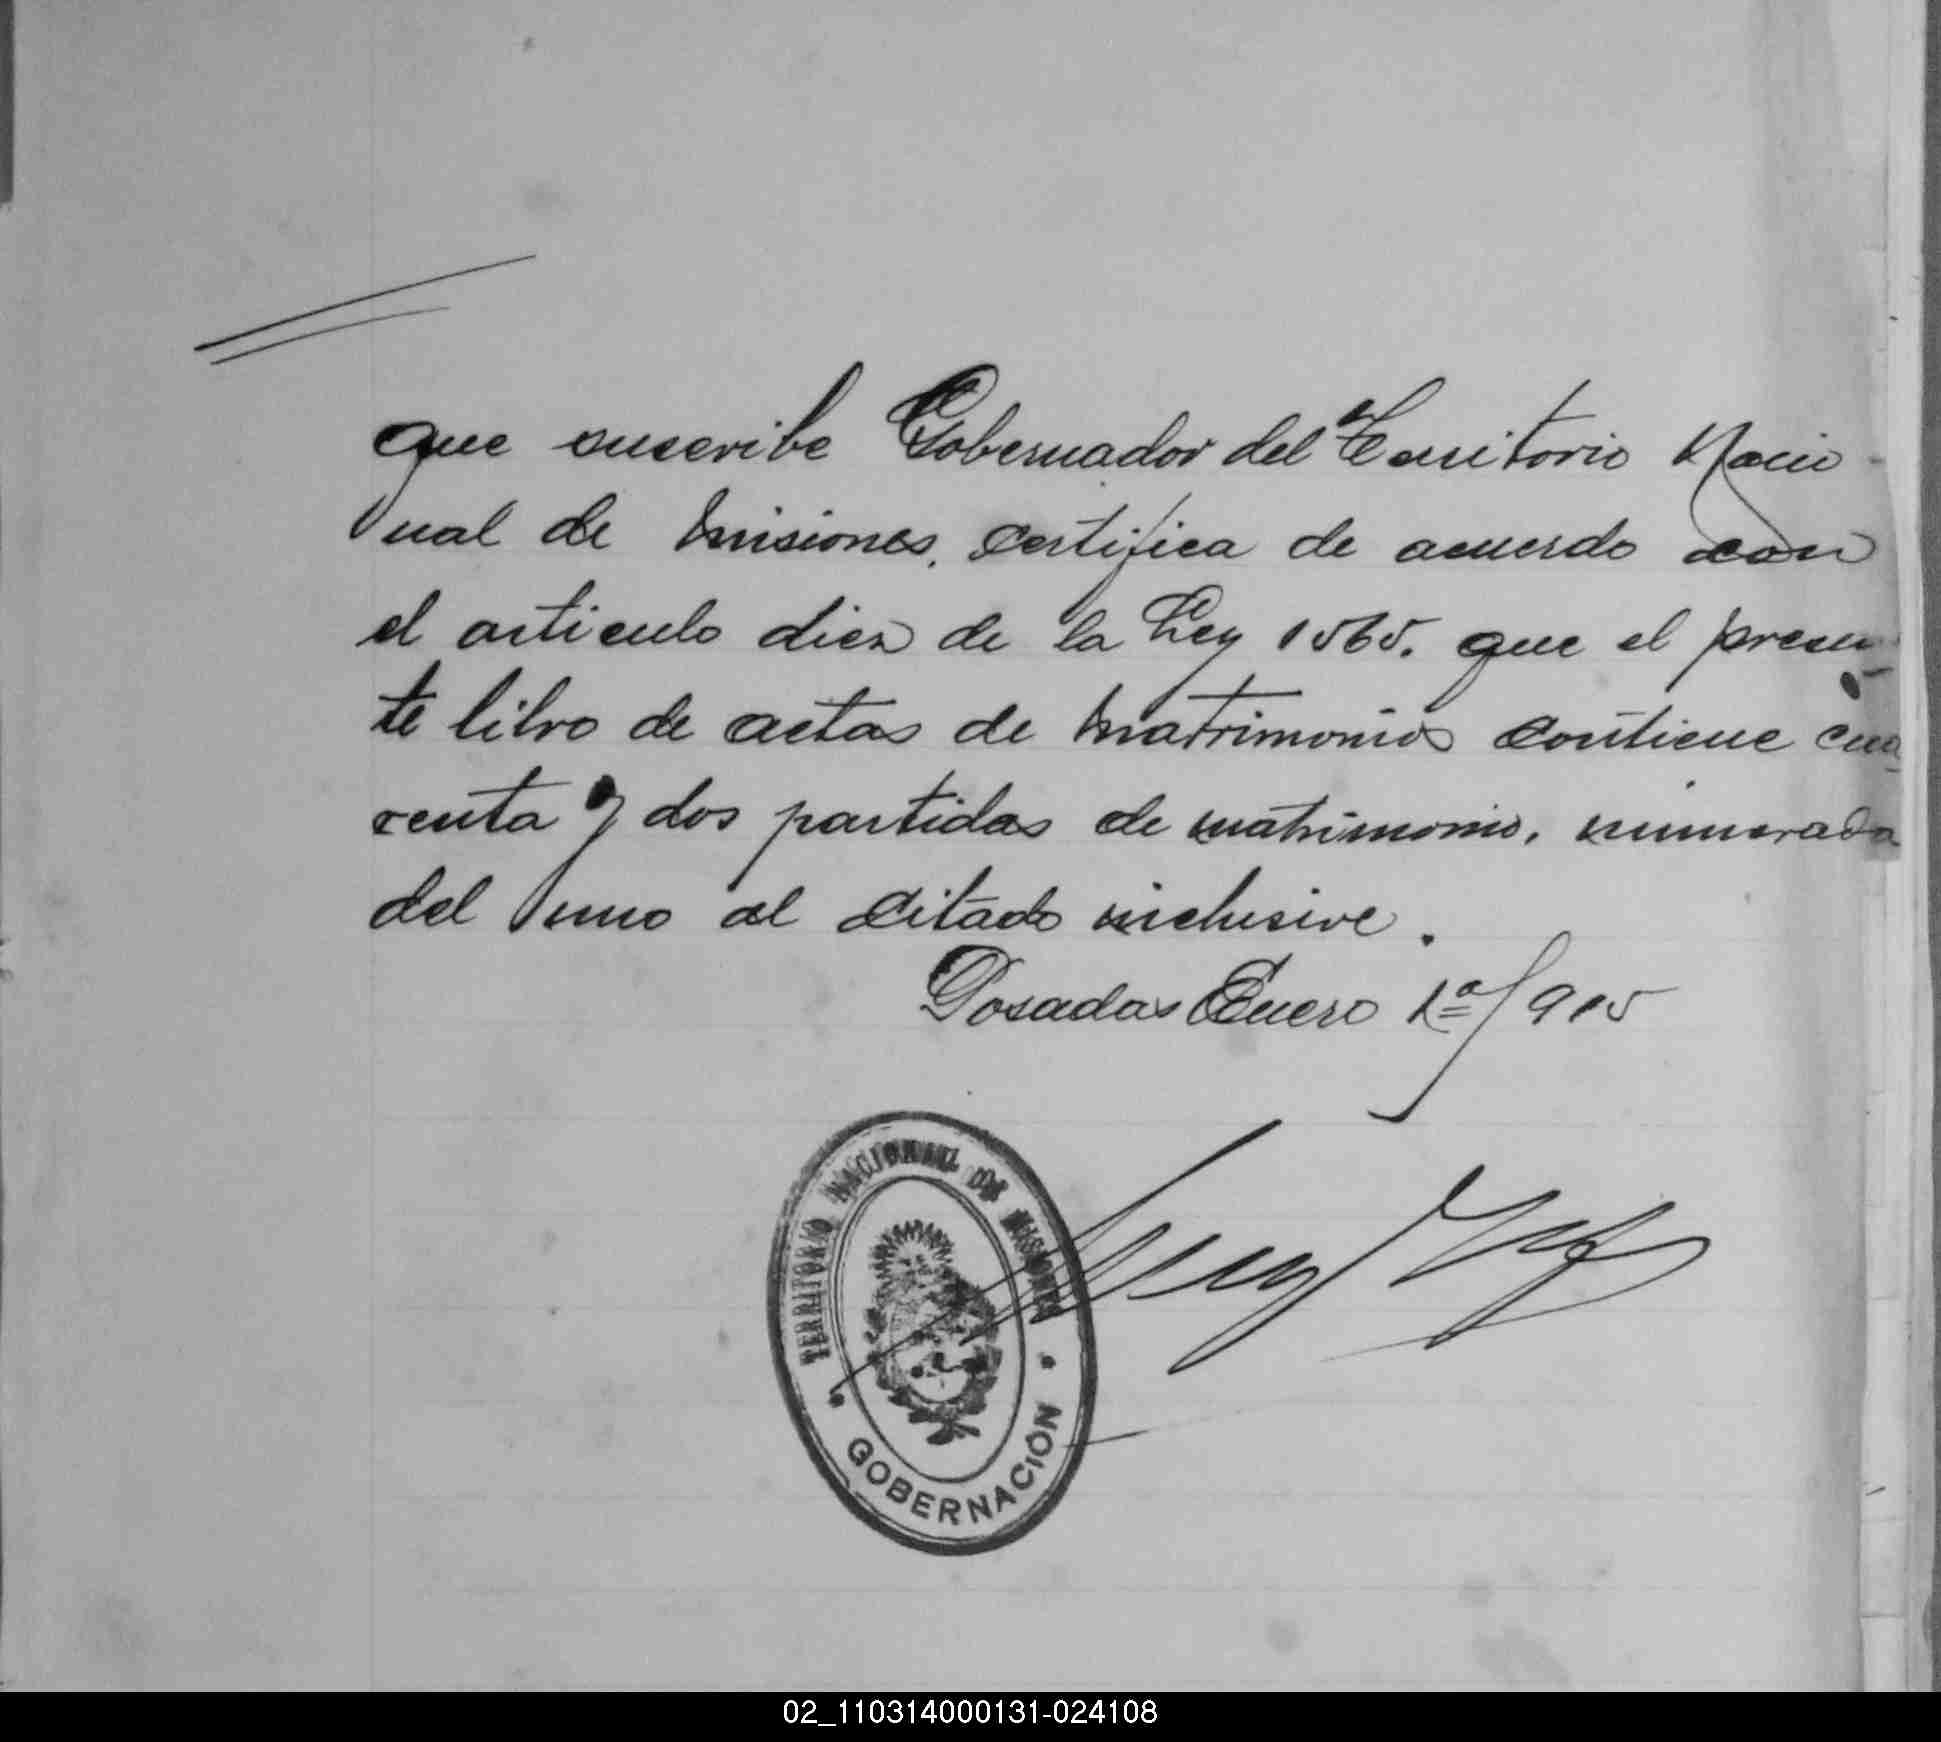 que suscribe Gobernador del Territorio Nacio-
nal de Misiones, certifica de acuerdo con
el articulo diez de la Ley 1565. que el presen-
te libro de actas de Matrimonios contiene cua-
renta y dos partidas de matrimonio, numerada
del uno al citado inclusive.
Posadas Enero 1º/915
TERRITORIO NACIONAL DE MISIONES
GOBERNACIÓN
02_110314000131-024108